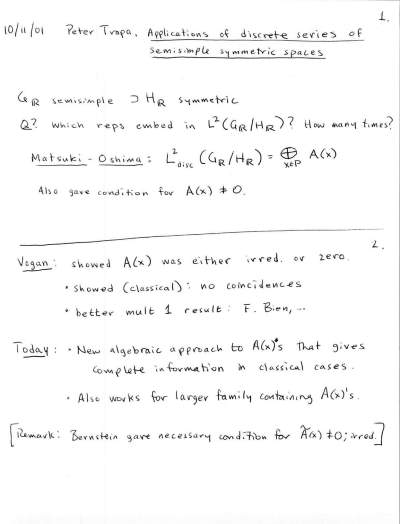 1.
10/11/01 Peter Trapa, Applications of discrete series of
semisimple symmetric spaces
G_R semisimple ⊃ H_R symmetric
Q? Which reps embed in L²(G_R/H_R)? How many times?
Matsuki-Oshima: L²_disc (G_R/H_R) = ⊕_{x∈P} A(x)
Also gave condition for A(x) ≠ 0.
2.
Vogan: showed A(x) was either irred. or zero.
• showed (classical): no coincidences
• better mult 1 result: F. Bien, ...
Today: • New algebraic approach to A(x)'s that gives
complete information in classical cases.
• Also works for larger family containing A(x)'s.
[Remark: Bernstein gave necessary condition for Ã(x) ≠ 0; irred.]